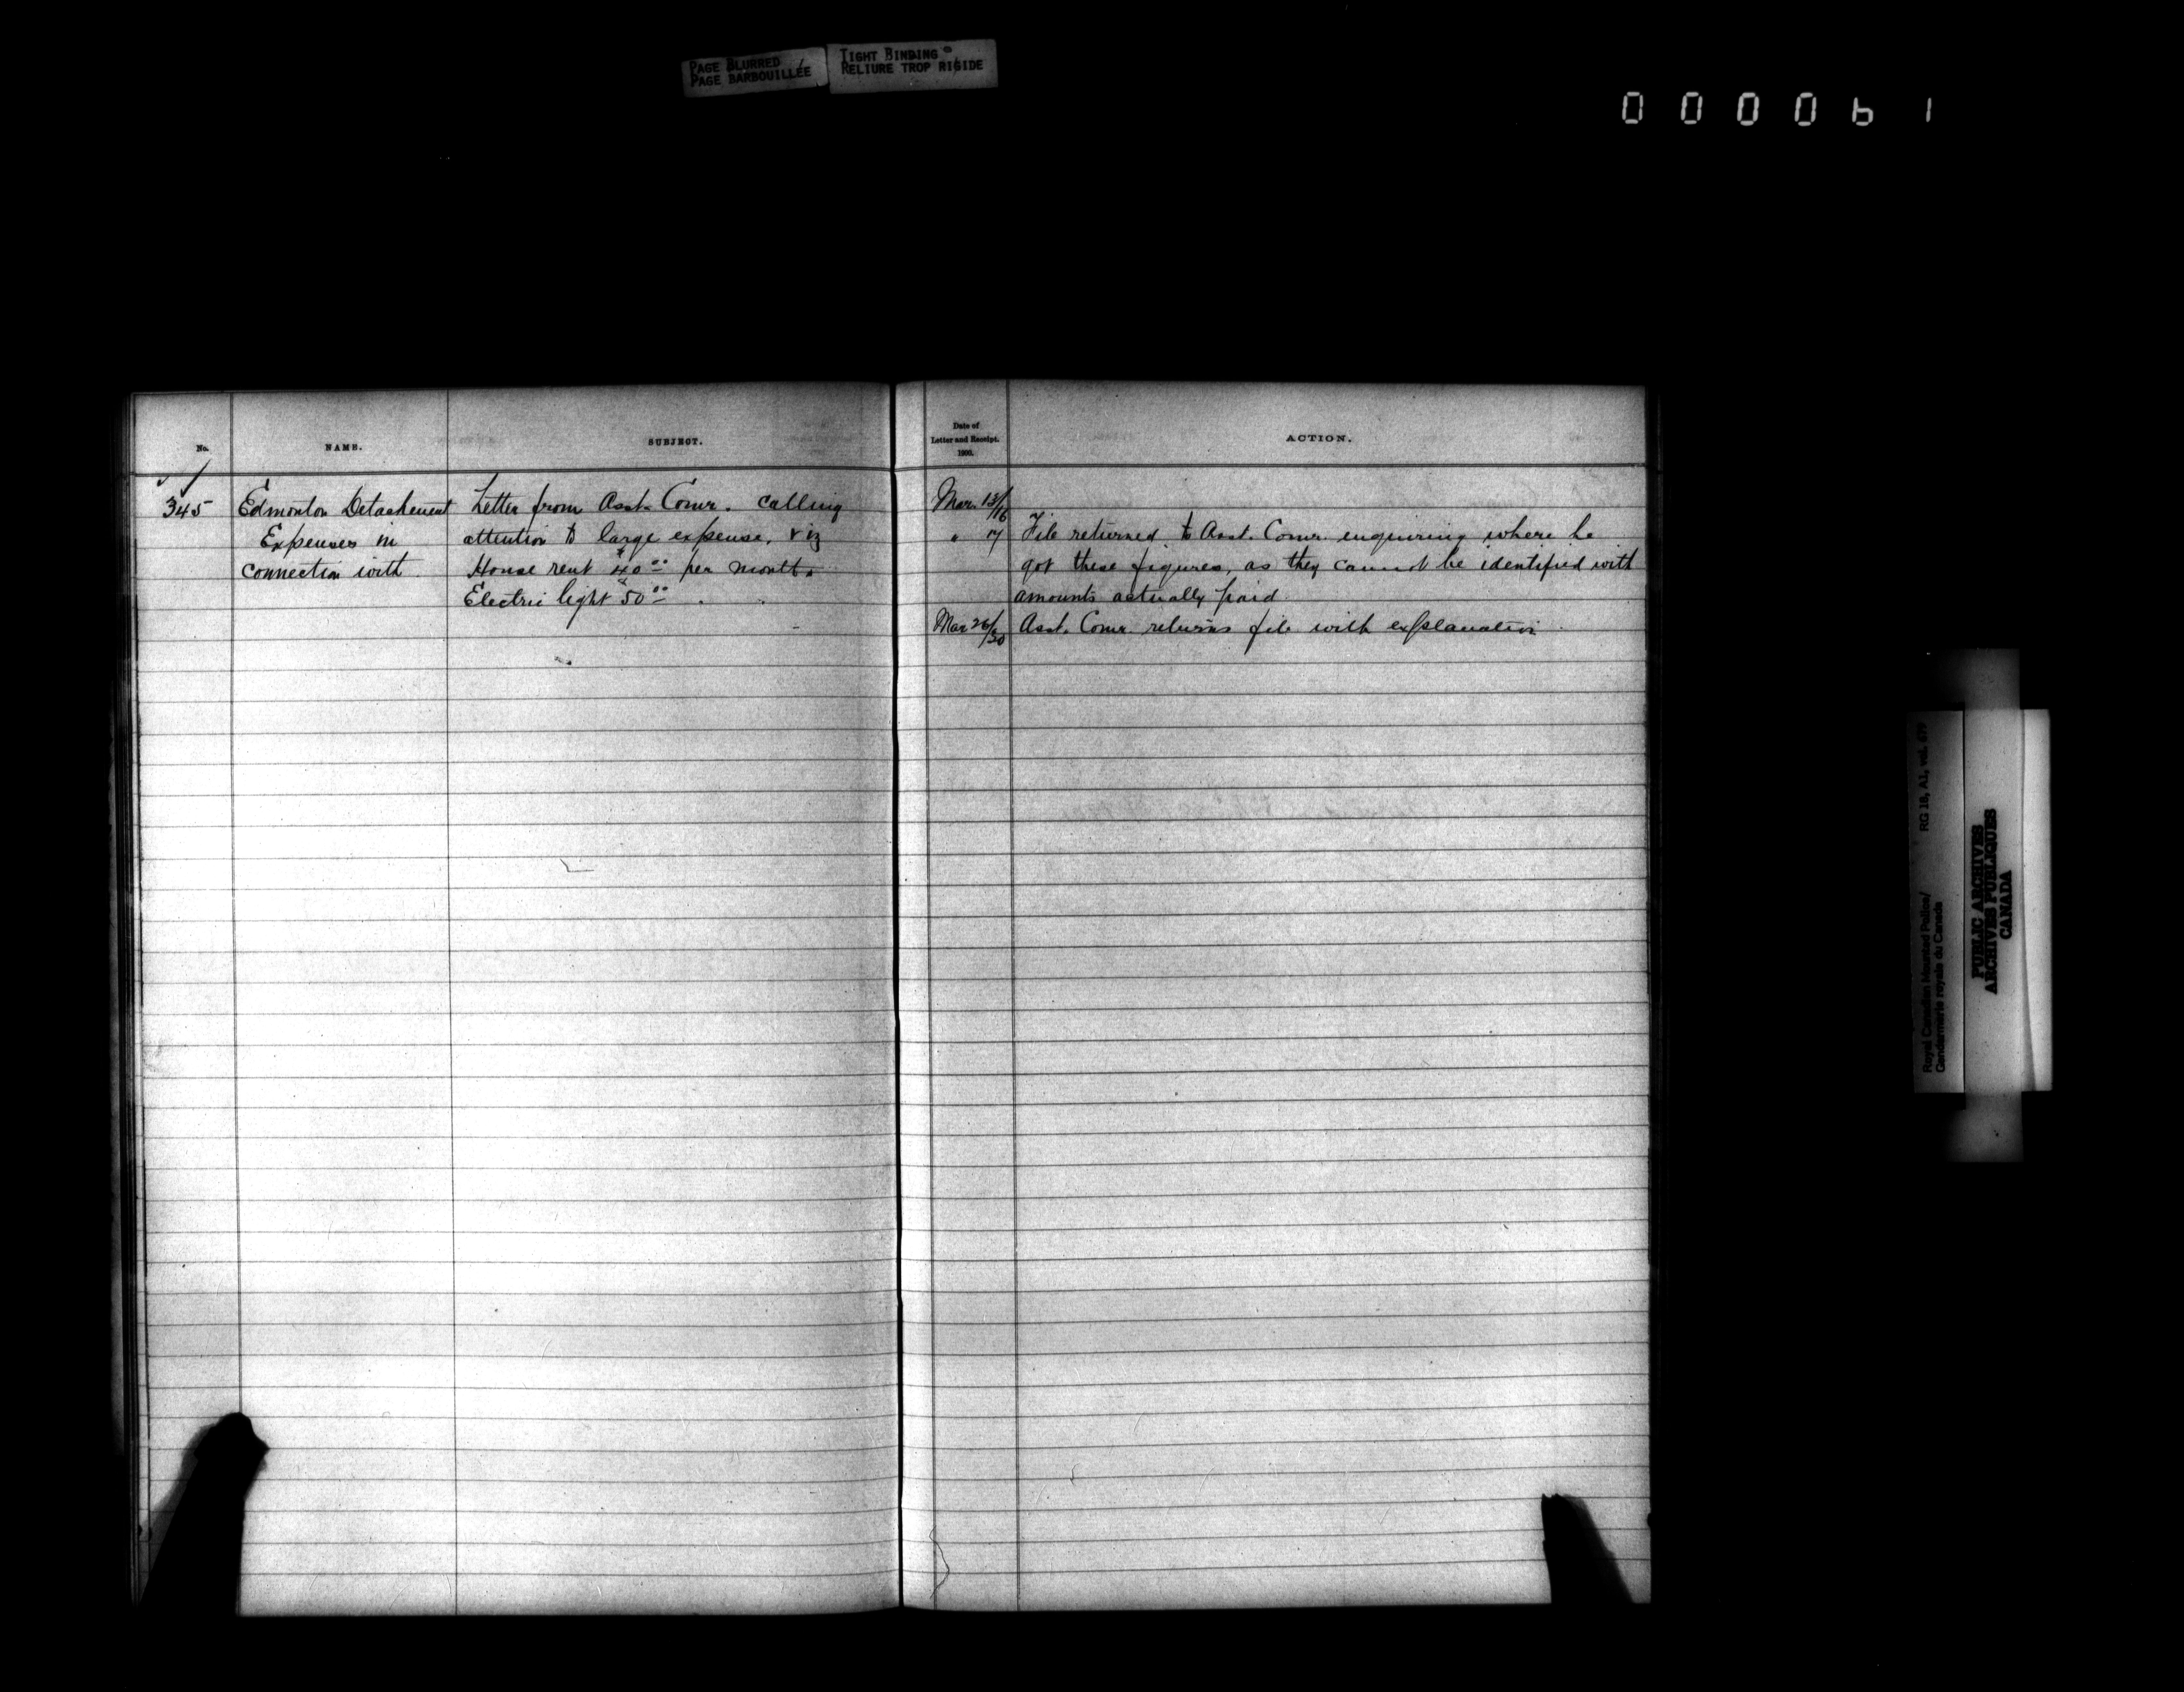 PAGE BLURRED
PAGE BARBOUILLÉE
TIGHT BINDING
RELIURE TROP RIGIDE
0 0 0 0 6 1
No.
NAME.
SUBJECT.
Date of
Letter and Receipt.
1900.
ACTION.
345
Edmonton Detachment
Expenses in
connection with
Letter from Asst. Comr. calling
attention to large expense, viz
House rent $40.00 per month
Electric light $50.00 " "
Mar. 13/16
" 17 File returned to Asst. Comr. enquiring where he
got these figures, as they cannot be identified with
amounts actually paid
Mar 26/30 Asst. Comr. returns file with explanation
Royal Canadian Mounted Police/ RG 18, A1, vol. 679
Gendarmerie royale du Canada
PUBLIC ARCHIVES
ARCHIVES PUBLIQUES
CANADA